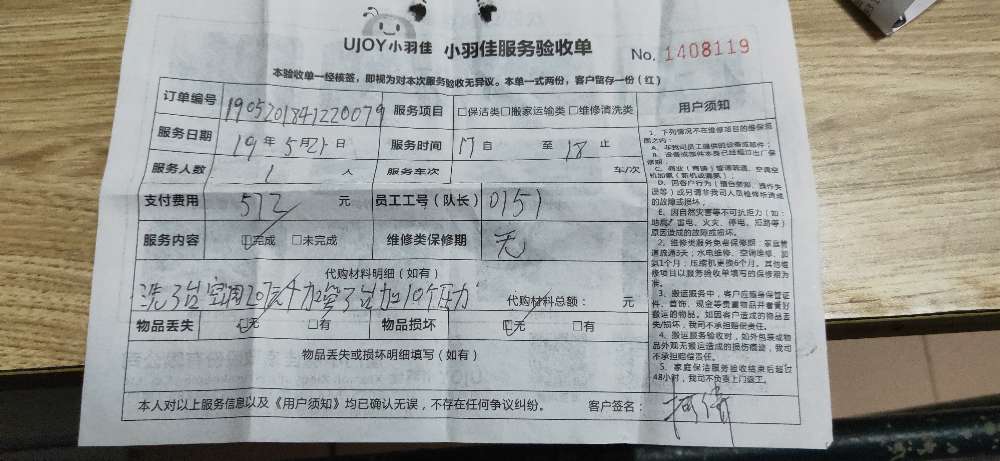 UJOY小羽佳 小羽佳服务验收单 No. 1408119
本验收单一经核签，即视为对本次服务验收无异议。本单一式两份，客户留存一份（红）
订单编号 1905201841220079 服务项目 □保洁类□搬家运输类□维修清洗类
服务日期 19年5月21日 服务时间 17自 至 18止
服务人数 1 人 服务车次 车/次
支付费用 572 元 员工工号（队长） 0151
服务内容 □完成 □未完成 维修类保修期 无
代购材料明细（如有）
代购材料总额： 元
物品丢失 □无 □有 物品损坏 □无 □有
物品丢失或损坏明细填写（如有）
本人对以上服务信息以及《用户须知》均已确认无误，不存在任何争议纠纷。 客户签名：
用户须知
1、下列情况不在维修项目的维保范
围之内：
A、非我司员工提供的设备或部件；
B、设备或部件本身已经超过出厂保
修期；
D、因客户行为（擅自拆卸、操作失
误等）或另请非我司人员检修所造成
的故障或损坏，
E、因自然灾害等不可抗阻力（如：
地震、雷电、火灾、停电、短路等）
原因造成的故障或损坏。
2、维修类服务免费保修期：家庭管
道疏通5天；水电维修、空调维修、加
氨1个月；压缩机更换6个月。其他维
修项目以服务验收单填写的保修期为
准。
3、搬运服务中，客户应随身保管证
件、首饰、现金等贵重物品并看管好
搬运的物品。如因客户造成的物品丢
失/损坏，我司不承担赔偿责任。
4、搬运服务验收时，如外包装或物
品外观无搬运造成的损伤痕迹，我司
不承担赔偿责任。
5、家庭保洁服务验收结束后超过
48小时，我司不负责上门返工。